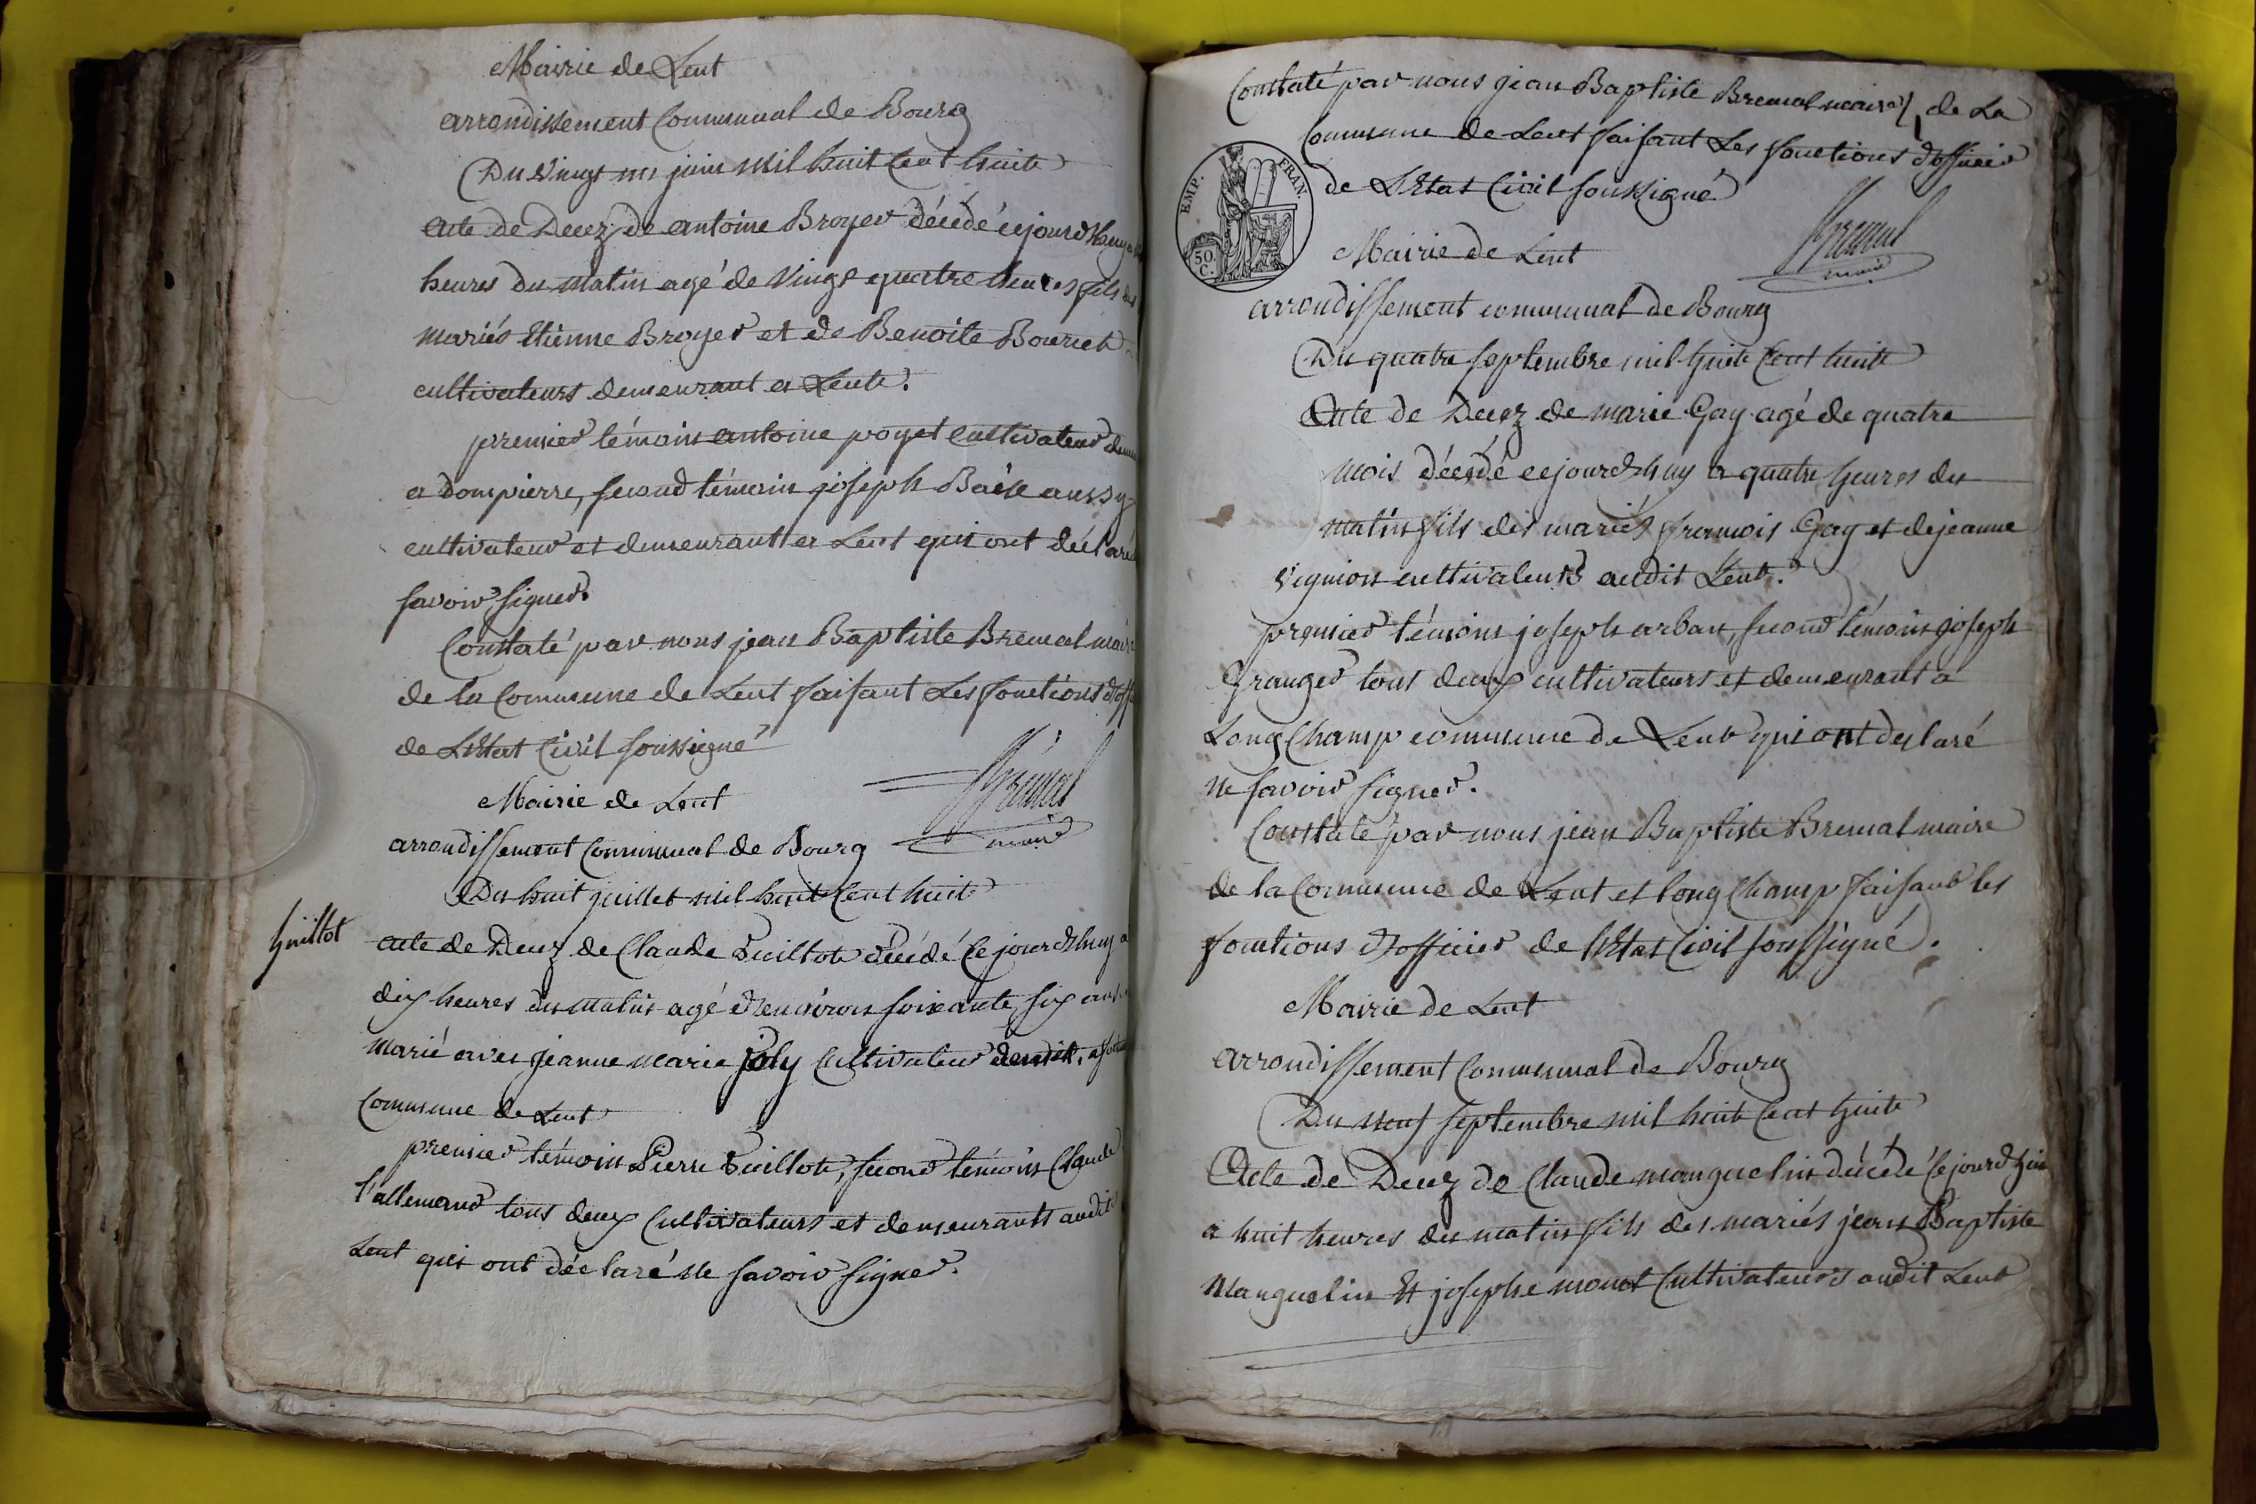 Mairie de Lent
arrondissement Communal de Bourg
Du vingt un juin mil huit Cent huit
acte de Decez de antoine Broyer décédé cejourd'huy
heures du matin agé de vingt quatre heures fils des
mariés Etienne Broyer et de Benoite Bouriet
cultivateurs demeurant a Lent.
premier témoin antoine poyet Cultivateur
a Dompierre, second témoin joseph aussy
cultivateur et demeurant a Lent qui ont déclaré
savoir signer.
Constaté par nous jean Baptiste Bremal maire
de la Commune de Lent faisant Les fonctions
de L'Etat Civil soussigné
Bremal
maire
Mairie de Lent
arrondissement Communal de Bourg
Du huit juillet mil huit Cent huit
Guillot
acte de Decez de Claude Guillot décédé Cejourd'huy a
dix heures du matin agé d'environ soixante six ans
marié avec jeanne marie joly Cultivateur
Commune de Lent
premier témoin Pierre Guillot, second témoin Claude
l'allemand tous deux Cultivateurs et demeurants audit
Lent qui ont déclaré ne savoir signer.
Constaté par nous jean Baptiste Bremal maire de La
Commune de Lent faisant Les fonctions d'officier
de L'Etat Civil soussigné
EMP. FRAN.
50
C.
Bremal
maire
Mairie de Lent
arrondissement communal de Bourg
Du quatre septembre mil huit Cent huit
Acte de Decez de marie Gay agé de quatre
mois décédé cejourd'huy a quatre heures du
matin fils des mariés francois Gay et de jeanne
vignion cultivateurs audit Lent.
premier témoins joseph arban, second témoin joseph
Granger tous deux cultivateurs et demeurant a
Long Champ commune de Lent qui ont declaré
ne savoir signer.
Constaté par nous jean Baptiste Bremal maire
de la Commune de Lent et long Champ faisant les
fonctions d'officier de l'Etat Civil soussigné.
Mairie de Lent
arrondissement Communal de Bourg
Du neuf septembre mil huit Cent huit
Acte de Decez de Claude manguelin décédé Cejourd'hui
a huit heures du matin fils des mariés jean Baptiste
Manguelin Et josephe monet Cultivateurs audit Lent